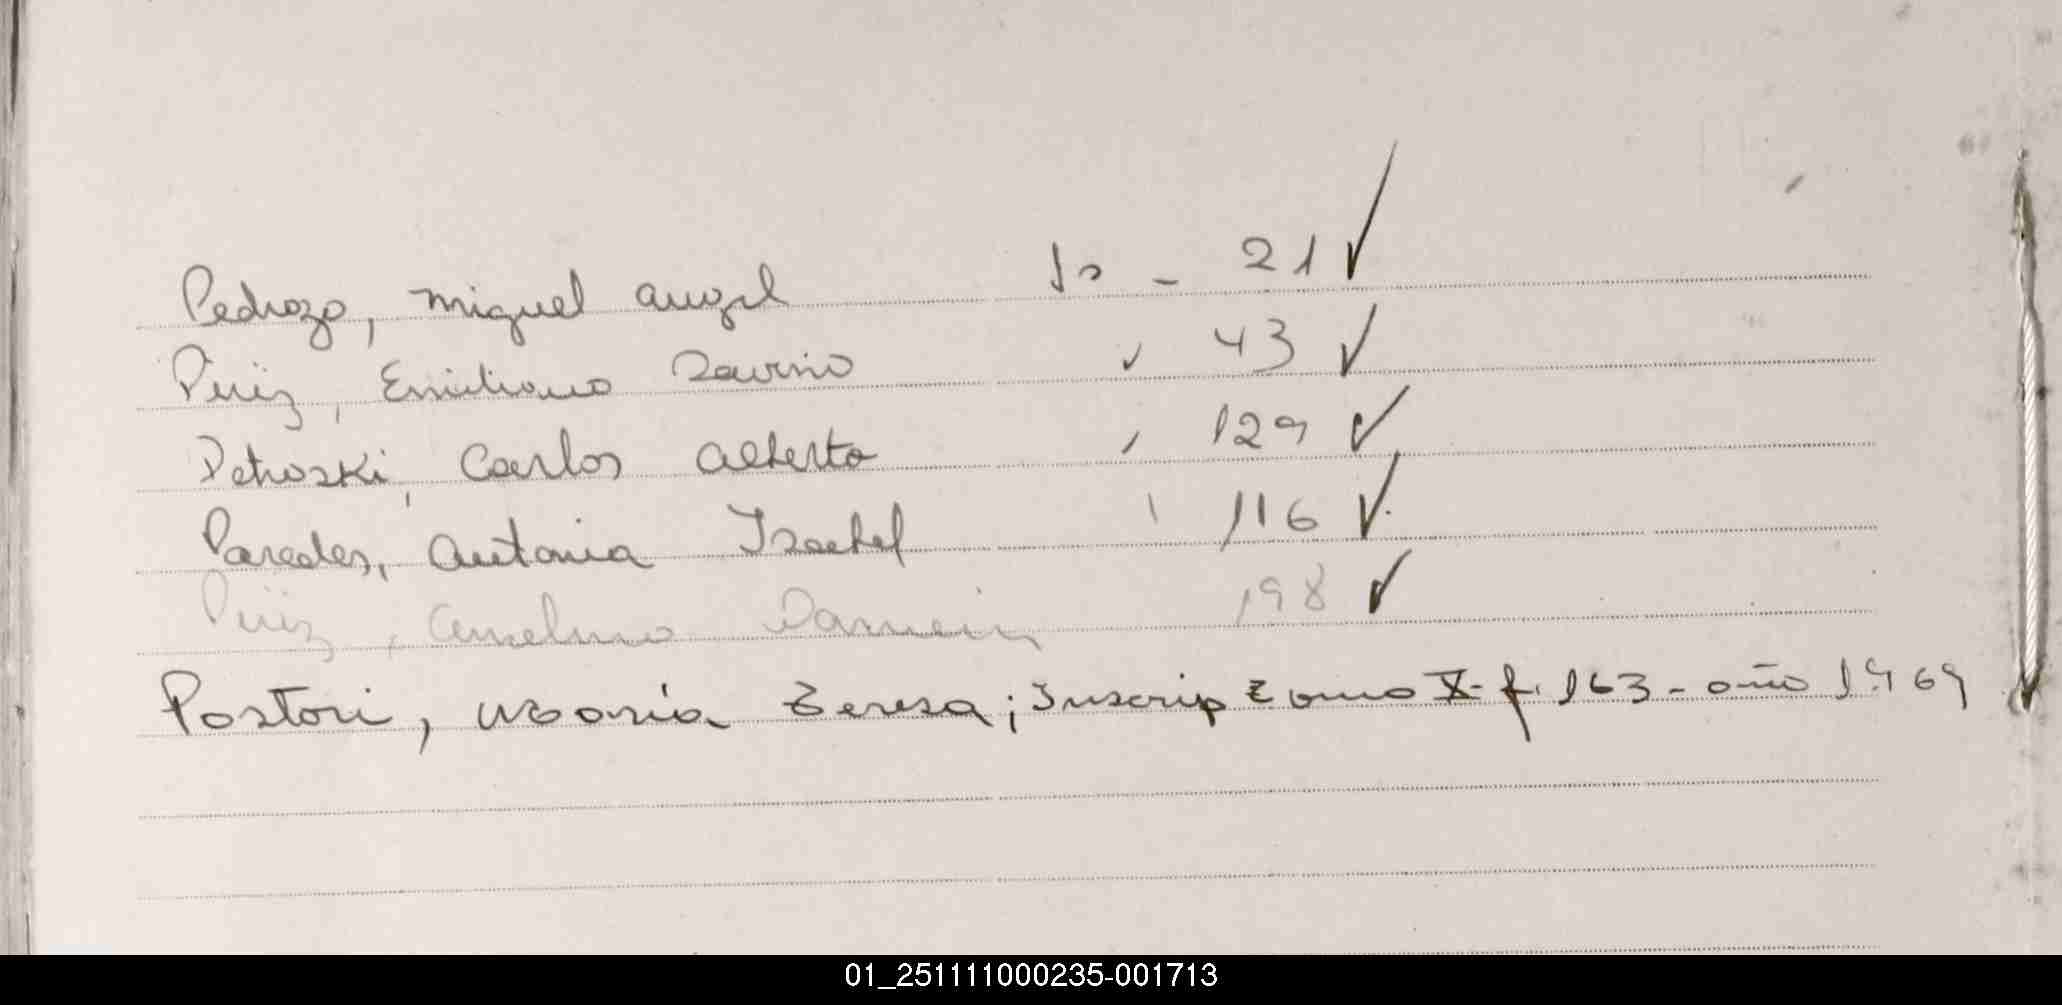 Pedrozo, Miguel Angel 1º - 21 ✓
Pérez, Emiliano ✓ 43 ✓
Petroski, Carlos Alberto 129 ✓
Paredes, Antonia Isabel 116 ✓
Pérez, Anselmo Damián 198 ✓
Pastori, María Teresa; Inscrip Tomo X - f. 163 - año 1969
01_251111000235-001713